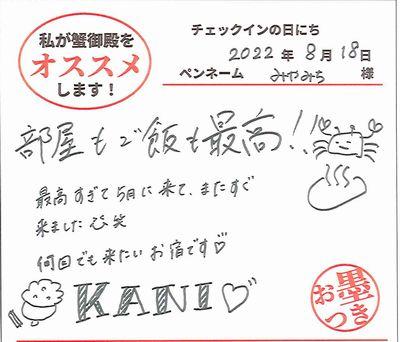 私が蟹御殿を
オススメ
します！
チェックインの日にち
2022 年 8 月 18 日
ペンネーム みやみち 様
部屋もご飯も最高!!
最高すぎて5月に来て、またすぐ
来ました 笑
何回でも来たいお宿です♡
KANI♡
お墨つき